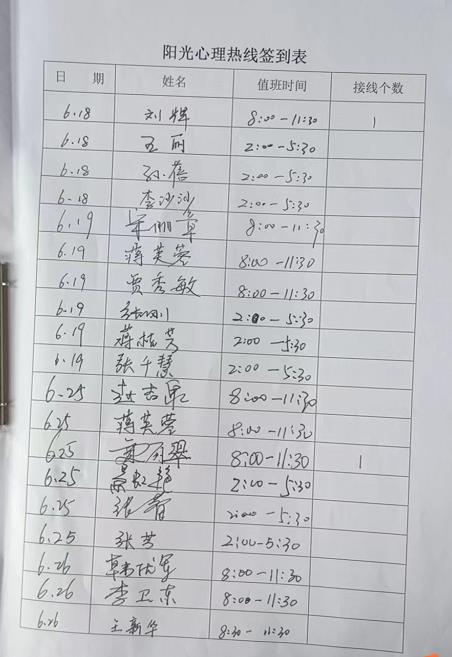 阳光心理热线签到表
日 期 姓名 值班时间 接线个数
6.18 刘辉 8:00-11:30 1
6.18 王丽 2:00-5:30
6.18 孙蓓 2:00-5:30
6.18 李沙沙 2:00-5:30
6.19 8:00-11:30
6.19 蒋芙蓉 8:00-11:30
6.19 贾秀敏 8:00-11:30
6.19 2:00-5:30
6.19 蒋桂芳 2:00-5:30
6.19 张千慧 2:00-5:30
6.25 8:00-11:30
6.25 蒋芙蓉 8:00-11:30
6.25 8:00-11:30 1
6.25 2:00-5:30
6.25 2:00-5:30
6.25 张芳 2:00-5:30
6.26 8:00-11:30
6.26 李卫东 8:00-11:30
6.26 王新华 8:30-11:30